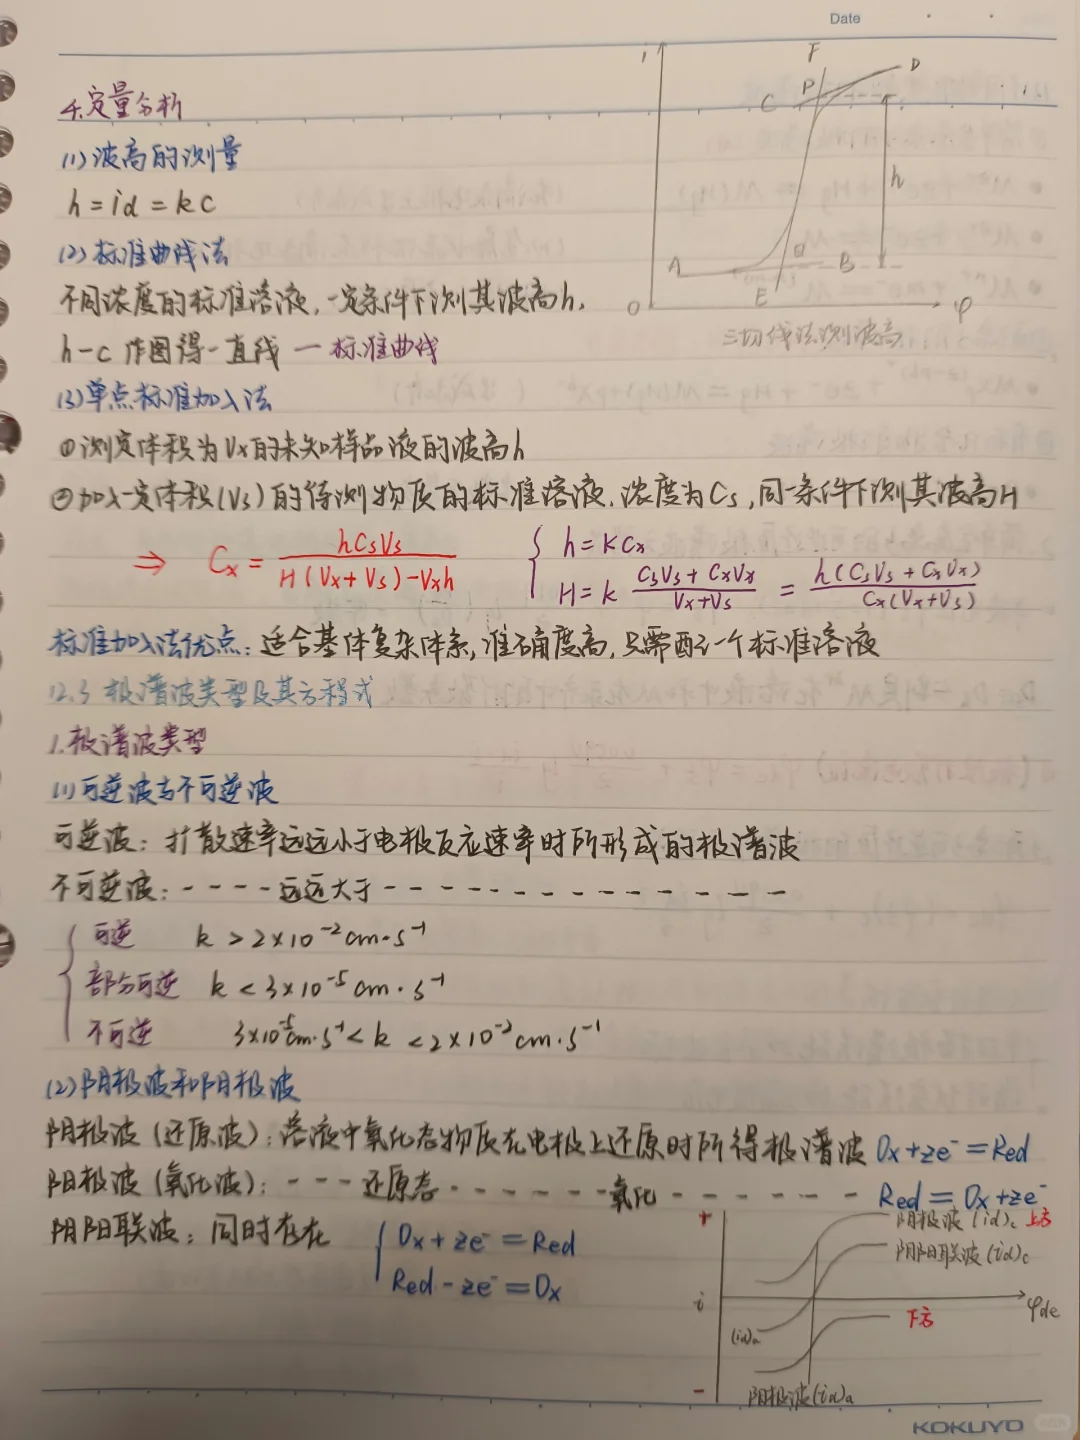 Date
4.定量分析
(1)波高的测量
h=id=kc
(2)标准曲线法
不同浓度的标准溶液,一定条件下测其波高h,
h-c 作图得一直线 — 标准曲线
i
F
D
P
C
h
A
Q
B
E
O
φ
三切线法测波高
(3)单点标准加入法
①测定体积为Vx的未知样品液的波高h
②加入一定体积(Vs)的待测物质的标准溶液,浓度为Cs,同一条件下测其波高H
⇒ Cx = hCsVs / H(Vx+Vs)-Vxh
{ h=KCx
H=k (CsVs+CxVx)/(Vx+Vs) = h(CsVs+CxVx)/Cx(Vx+Vs)
标准加入法优点:适合基体复杂体系,准确度高,只需配一个标准溶液
12.3 极谱波类型及其方程式
1.极谱波类型
(1)可逆波与不可逆波
可逆波:扩散速率远远小于电极反应速率时所形成的极谱波
不可逆波:- - - - 远远大于 - - - - - - - - - - - - - -
{ 可逆 k > 2×10⁻²cm·s⁻¹
部分可逆 k < 3×10⁻⁵cm·s⁻¹
不可逆 3×10⁻⁵cm·s⁻¹ < k < 2×10⁻²cm·s⁻¹
(2)阴极波和阳极波
阴极波(还原波):溶液中氧化态物质在电极上还原时所得极谱波 Ox+ze⁻=Red
阳极波(氧化波):- - - 还原态 - - - - - - 氧化 - - - - - - - Red=Ox+ze⁻
阴阳联波:同时存在 { Ox+ze⁻=Red
Red-ze⁻=Ox
+
阴极波(id)c 上方
阴阳联波(id)c
i
φde
下方
(id)a
-
阳极波(id)a
KOKUYO